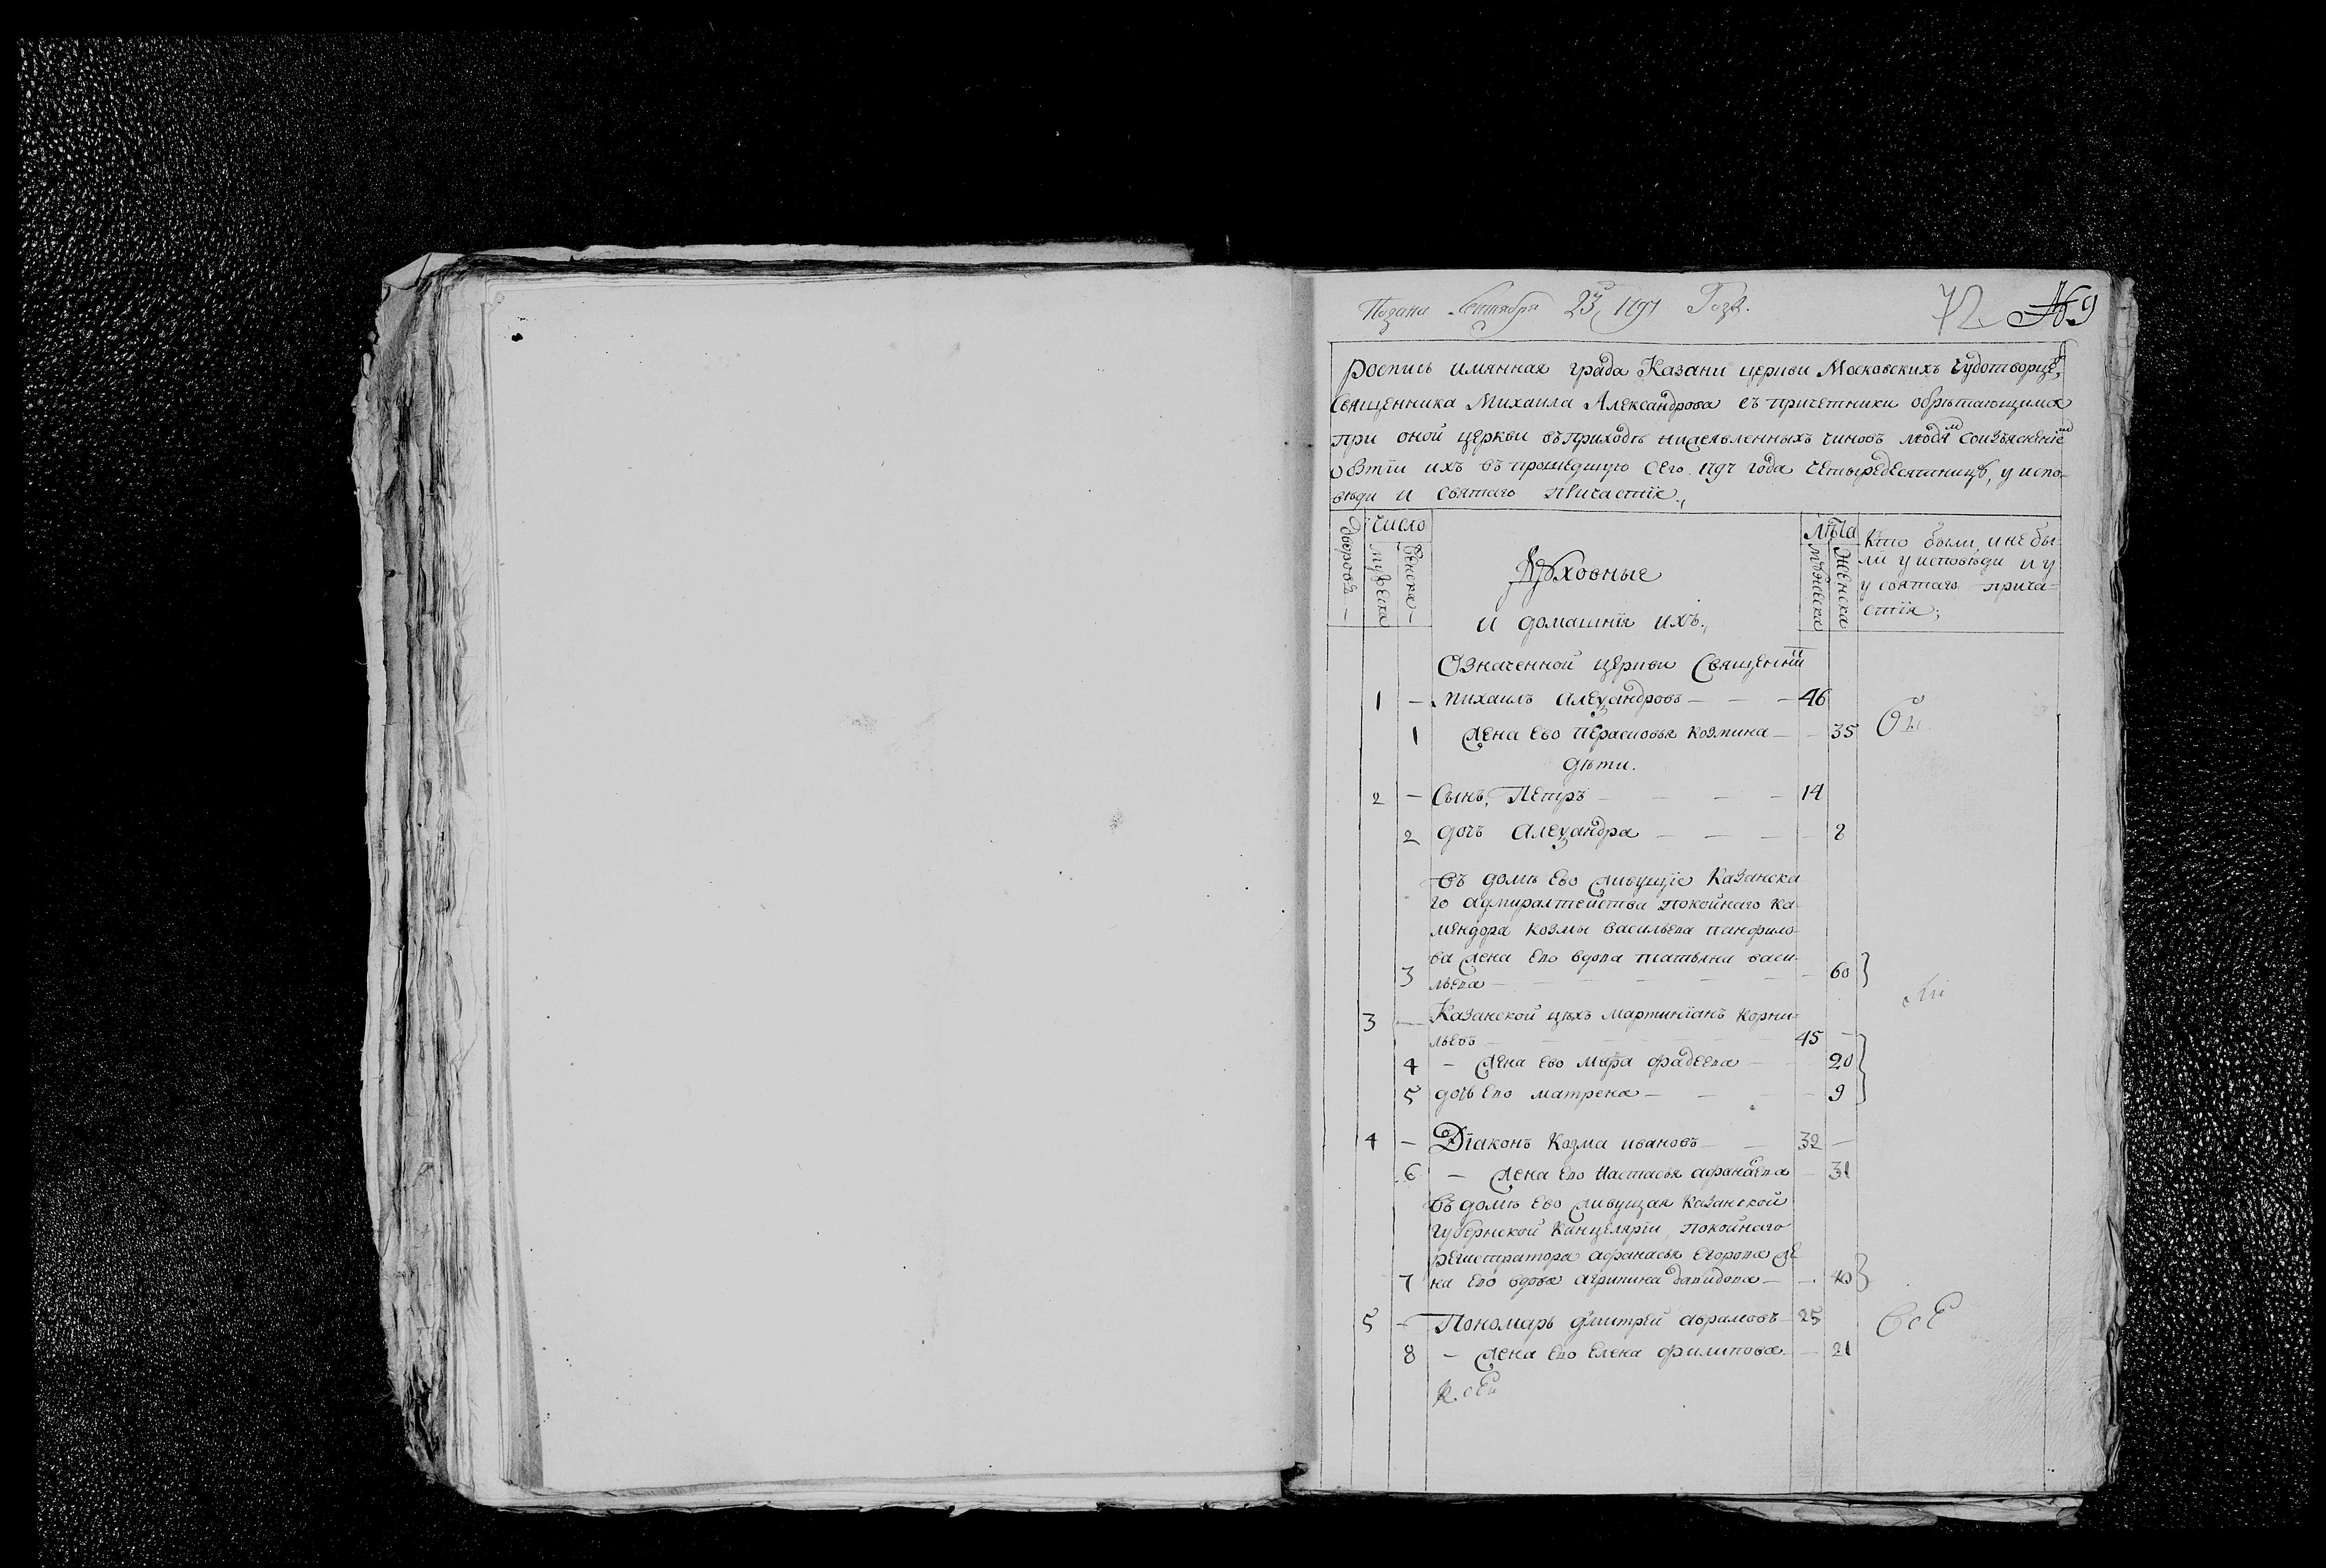 Подана Сентября 23 1797 Года.
72. №9
Роспись имянная града Казани церкви Московскихъ Чудотворце
Священника Михаила Александрова съ причетники обрѣтающимся
при оной церкви въ приходѣ нижеявленныхъ чиновъ людямъ соизъясненїемъ
о бытїи ихъ въ прошедшую сего 1797 года четыредесятницу, у испо-
вѣди и святаго причастїя.,
дворовъ
Число
мужеска
женска
Духовные
и домашнїя ихъ.,
Лѣта
мужеска
женска
Кто были, и не бы-
ли у исповѣди и у
у святаго прича-
стїя;
Означенной церкви Священни
1 — Михаилъ Александровъ — — — 46
1 жена ево Парасковья Козмина — — 35
дѣти.
2 — Сынъ, Петръ — — — 14
2 дочъ Александра — — — — 8
въ домѣ ево живущїе Казанска
го адмиралтейства покойнаго ка-
мендора Козмы Васильева Панфило-
ва жена ево вдова Татьяна Васи-
3 льева — — — — — — 60
3 — Казанской цѣхъ Мартинїанъ Корни-
льевъ — — — — — 45 —
4 — жена ево Марфа Фадеева — — 20
5 дочь ево Матрена — — — — 9
4 — Дїаконъ Козма Ивановъ — — 32 —
6 — жена ево Настасья Афанасева — 31
въ домѣ ево живущая Казанской
губернской Канцелярїи, покойнаго
регистратора Афанасья Егорова же
7 на ево вдова Агрипина Давидова — — 40
5 — Пономарь Дмитрей Аврамовъ 25
8 — жена ево Елена Филипова — — 21
все